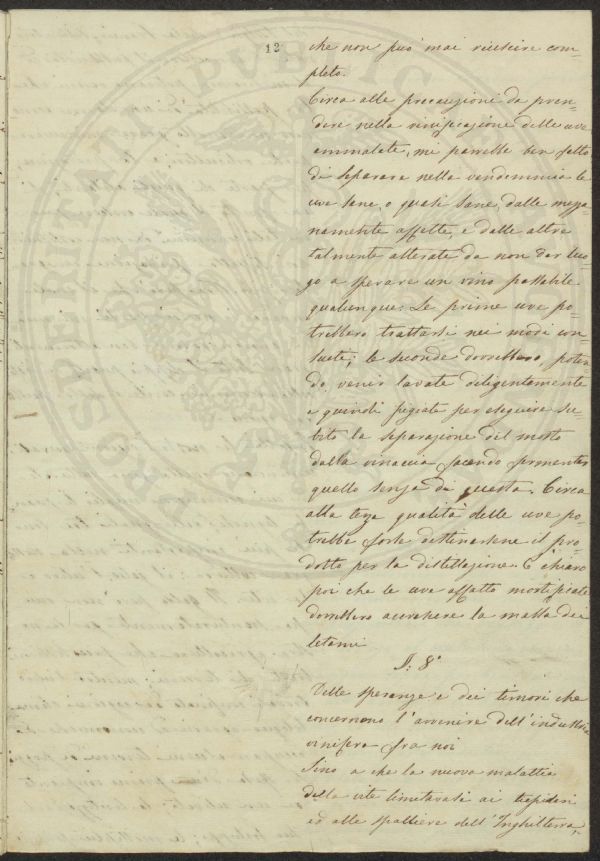 12
che non può mai riuscire com=
pleto.
Circa alle precauzioni da pren=
dere nella vinificazione delle uve
ammalate, mi parrebbe ben fatto
di separare nella vendemmia le
uve sane, o quasi sane, dalle mezza=
namente affette, e dalle altre
talmente alterate da non dar luo=
go a sperare un vino passabile
qualunque. Le prime uve po=
trebbero trattarsi nei modi con=
sueti; le seconde dovrebbero, poten
do venir lavate diligentemente
e quindi pigiate per eseguire su=
bito la separazione del mosto
dalla vinaccia facendo fermentar
quello senza di questa. Circa
alla terza qualità delle uve po=
trebbe forse destinarsene il pro=
dotto per la distillazione. È chiaro
poi che le uve affatto mortificate
dovrebbero accrescere la massa dei
letami
§: 8°
Delle speranze e dei timori che
concernono l'avvenire dell'industria
vinifera fra noi
Sino a che la nuova malattia
della vite limitavasi ai tepidari
ed alle spalliere dell'Inghilterra,
PROSPERITATI PVBLIC